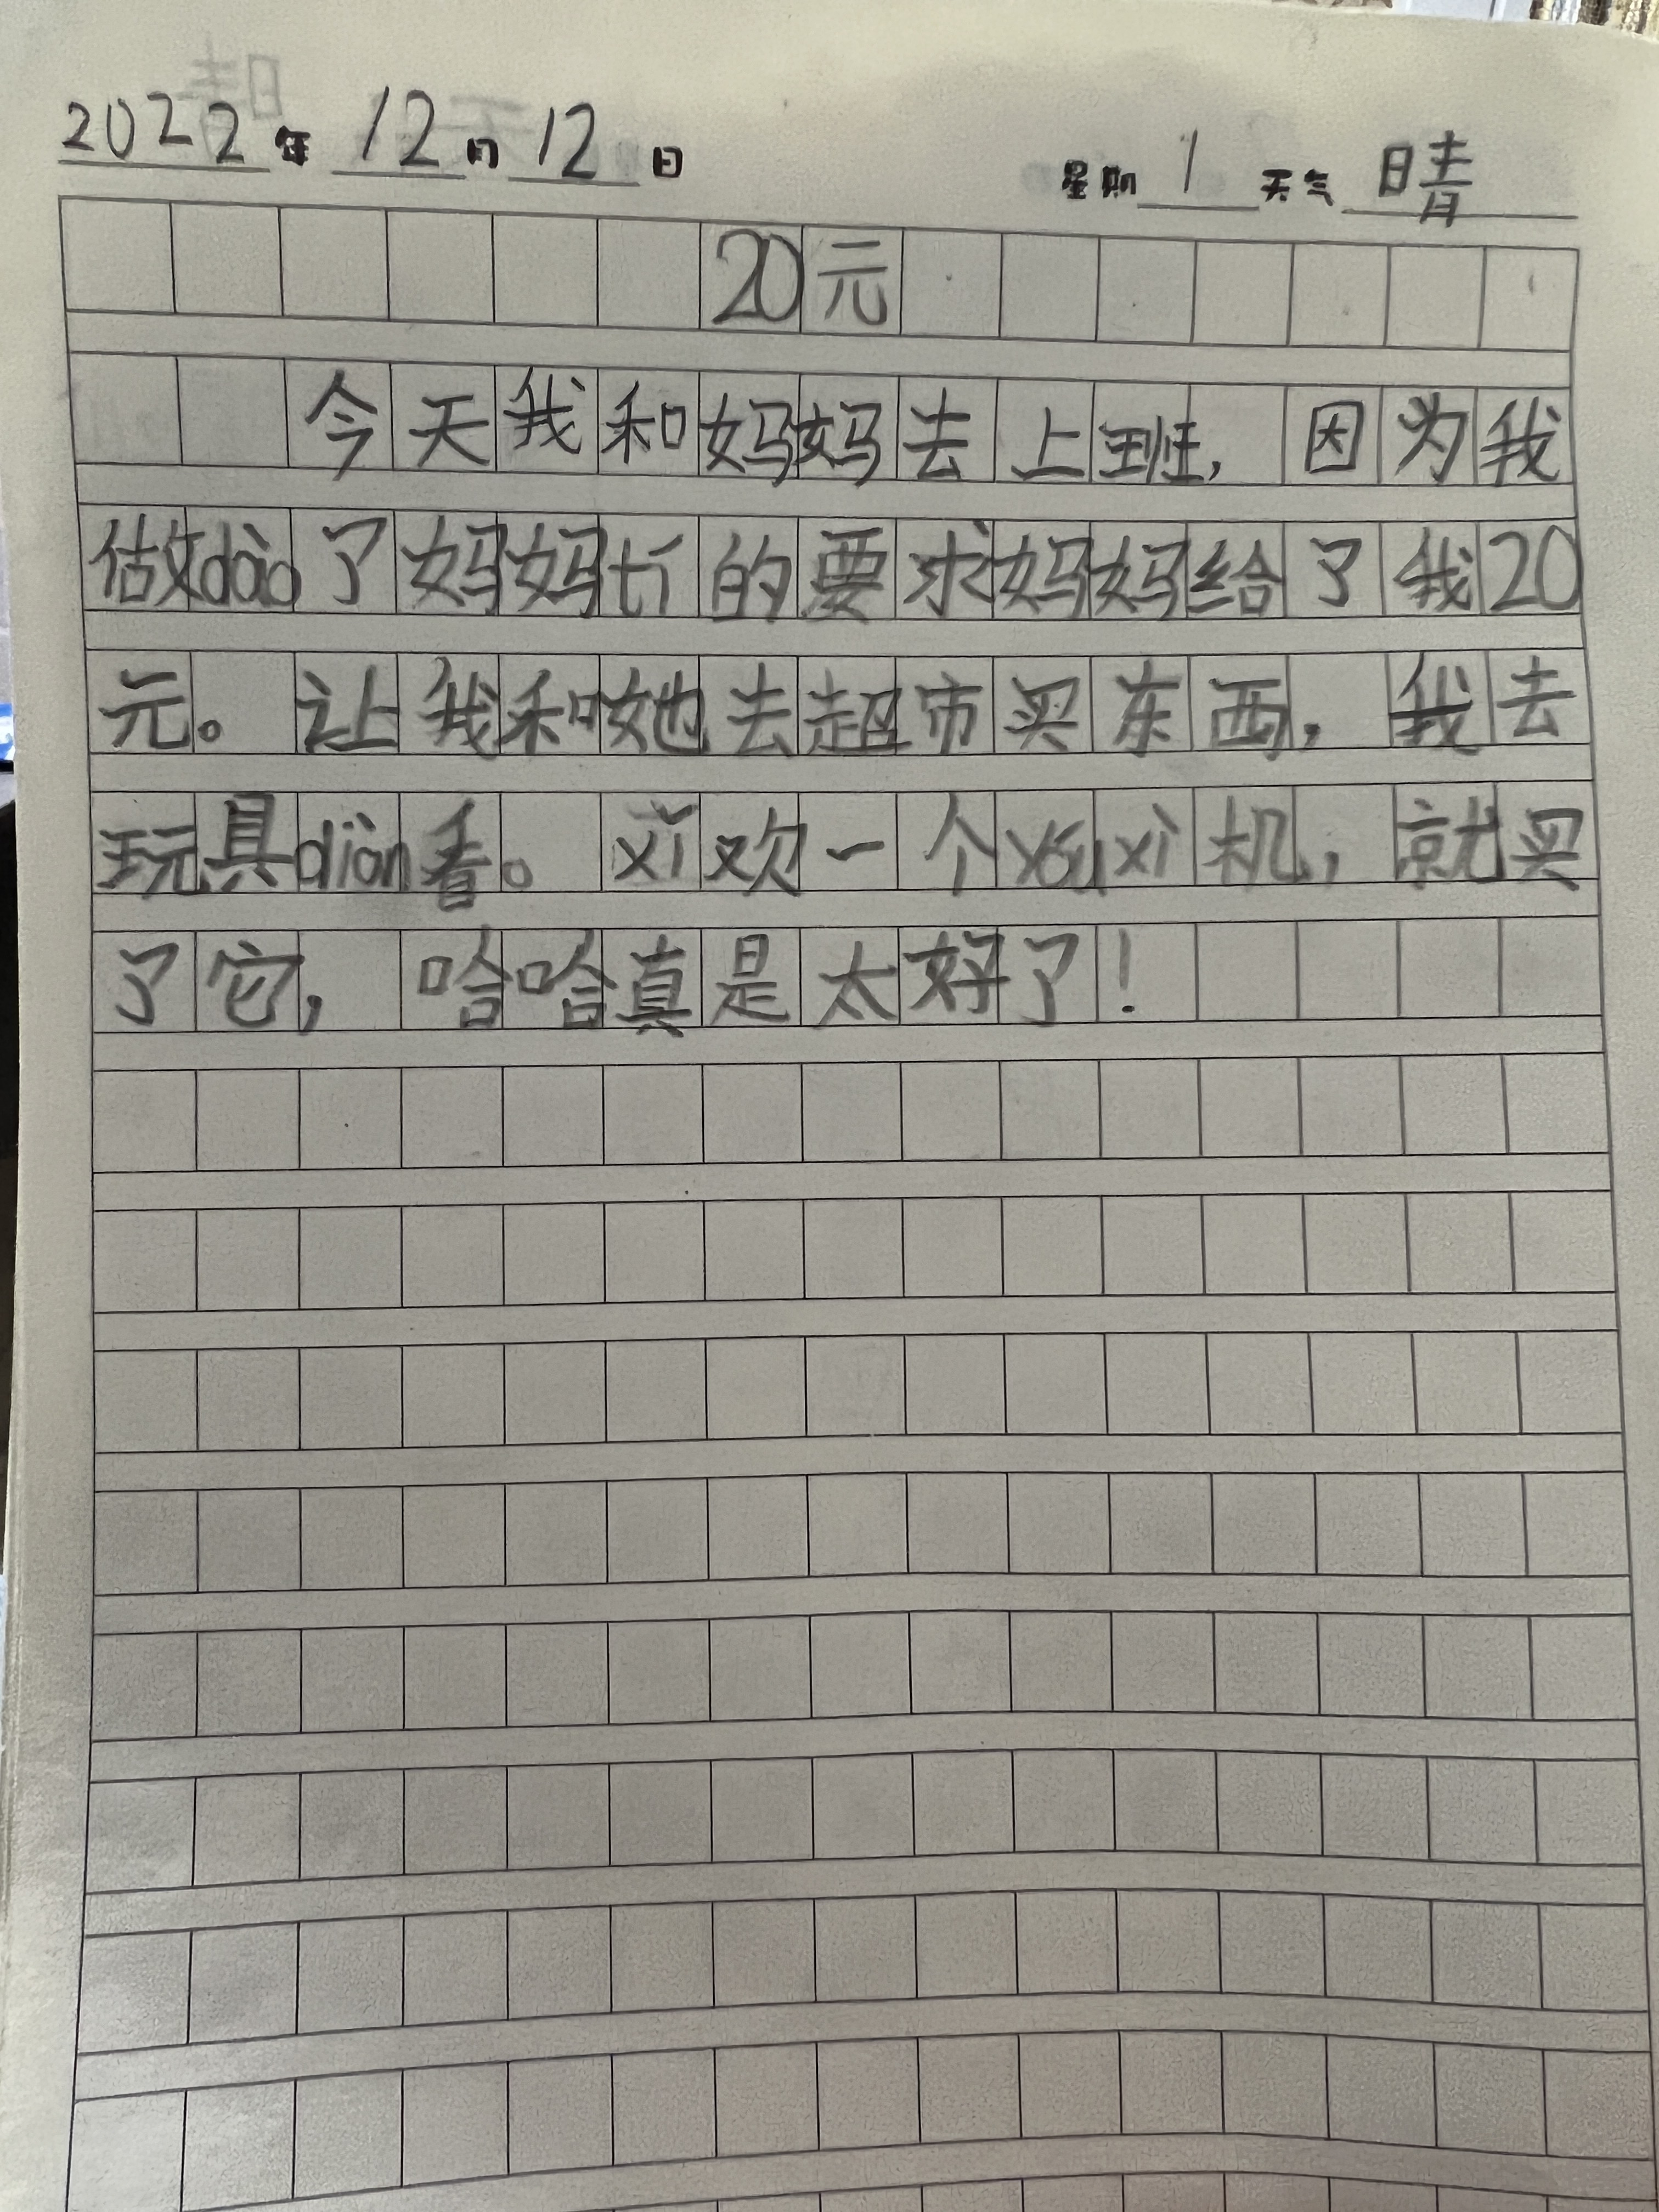 2022年12月12日 星期1天气晴
20元
今天我和妈妈去上班,因为我
做dào了妈妈tí的要求妈妈给了我20
元。让我和她去超市买东西,我去
玩具diàn看。xǐ欢一个yóuxì机,就买
了它,哈哈真是太好了!